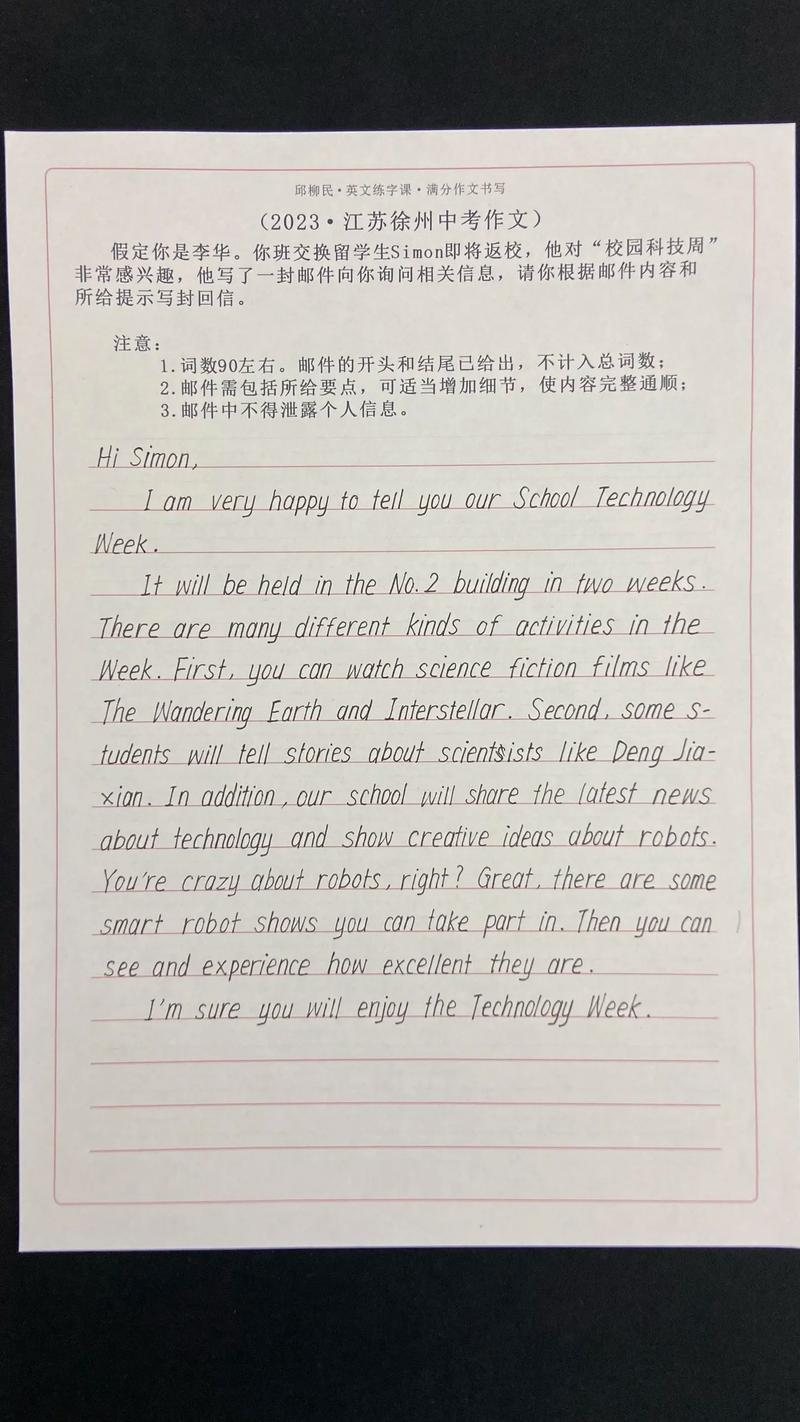 邱柳民·英文练字课·满分作文书写
（2023·江苏徐州中考作文）
假定你是李华。你班交换留学生Simon即将返校，他对“校园科技周”
非常感兴趣，他写了一封邮件向你询问相关信息，请你根据邮件内容和
所给提示写封回信。
注意：
1.词数90左右。邮件的开头和结尾已给出，不计入总词数；
2.邮件需包括所给要点，可适当增加细节，使内容完整通顺；
3.邮件中不得泄露个人信息。
Hi Simon,
I am very happy to tell you our School Technology
Week.
It will be held in the No.2 building in two weeks.
There are many different kinds of activities in the
Week. First, you can watch science fiction films like
The Wandering Earth and Interstellar. Second, some s-
tudents will tell stories about scientsists like Deng Jia-
xian. In addition, our school will share the latest news
about technology and show creative ideas about robots.
You're crazy about robots, right? Great, there are some
smart robot shows you can take part in. Then you can
see and experience how excellent they are.
I'm sure you will enjoy the Technology Week.